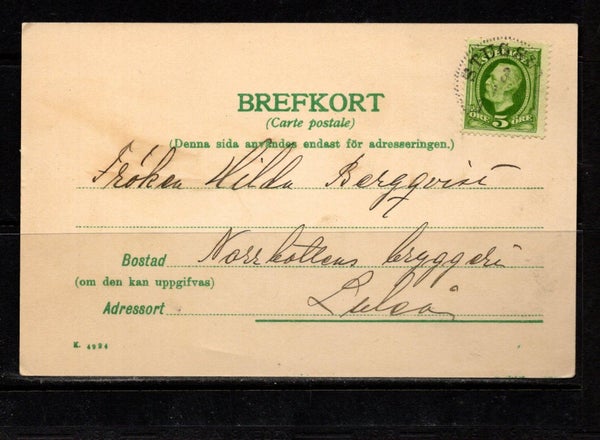 BREFKORT
(Carte postale)
(Denna sida användes endast för adresseringen.)
ÖRE 5 ÖRE
Fröken Hilda Bergqvist
Bostad Norrbottens bryggeri
(om den kan uppgifvas)
Adressort Luleå
K. 4924